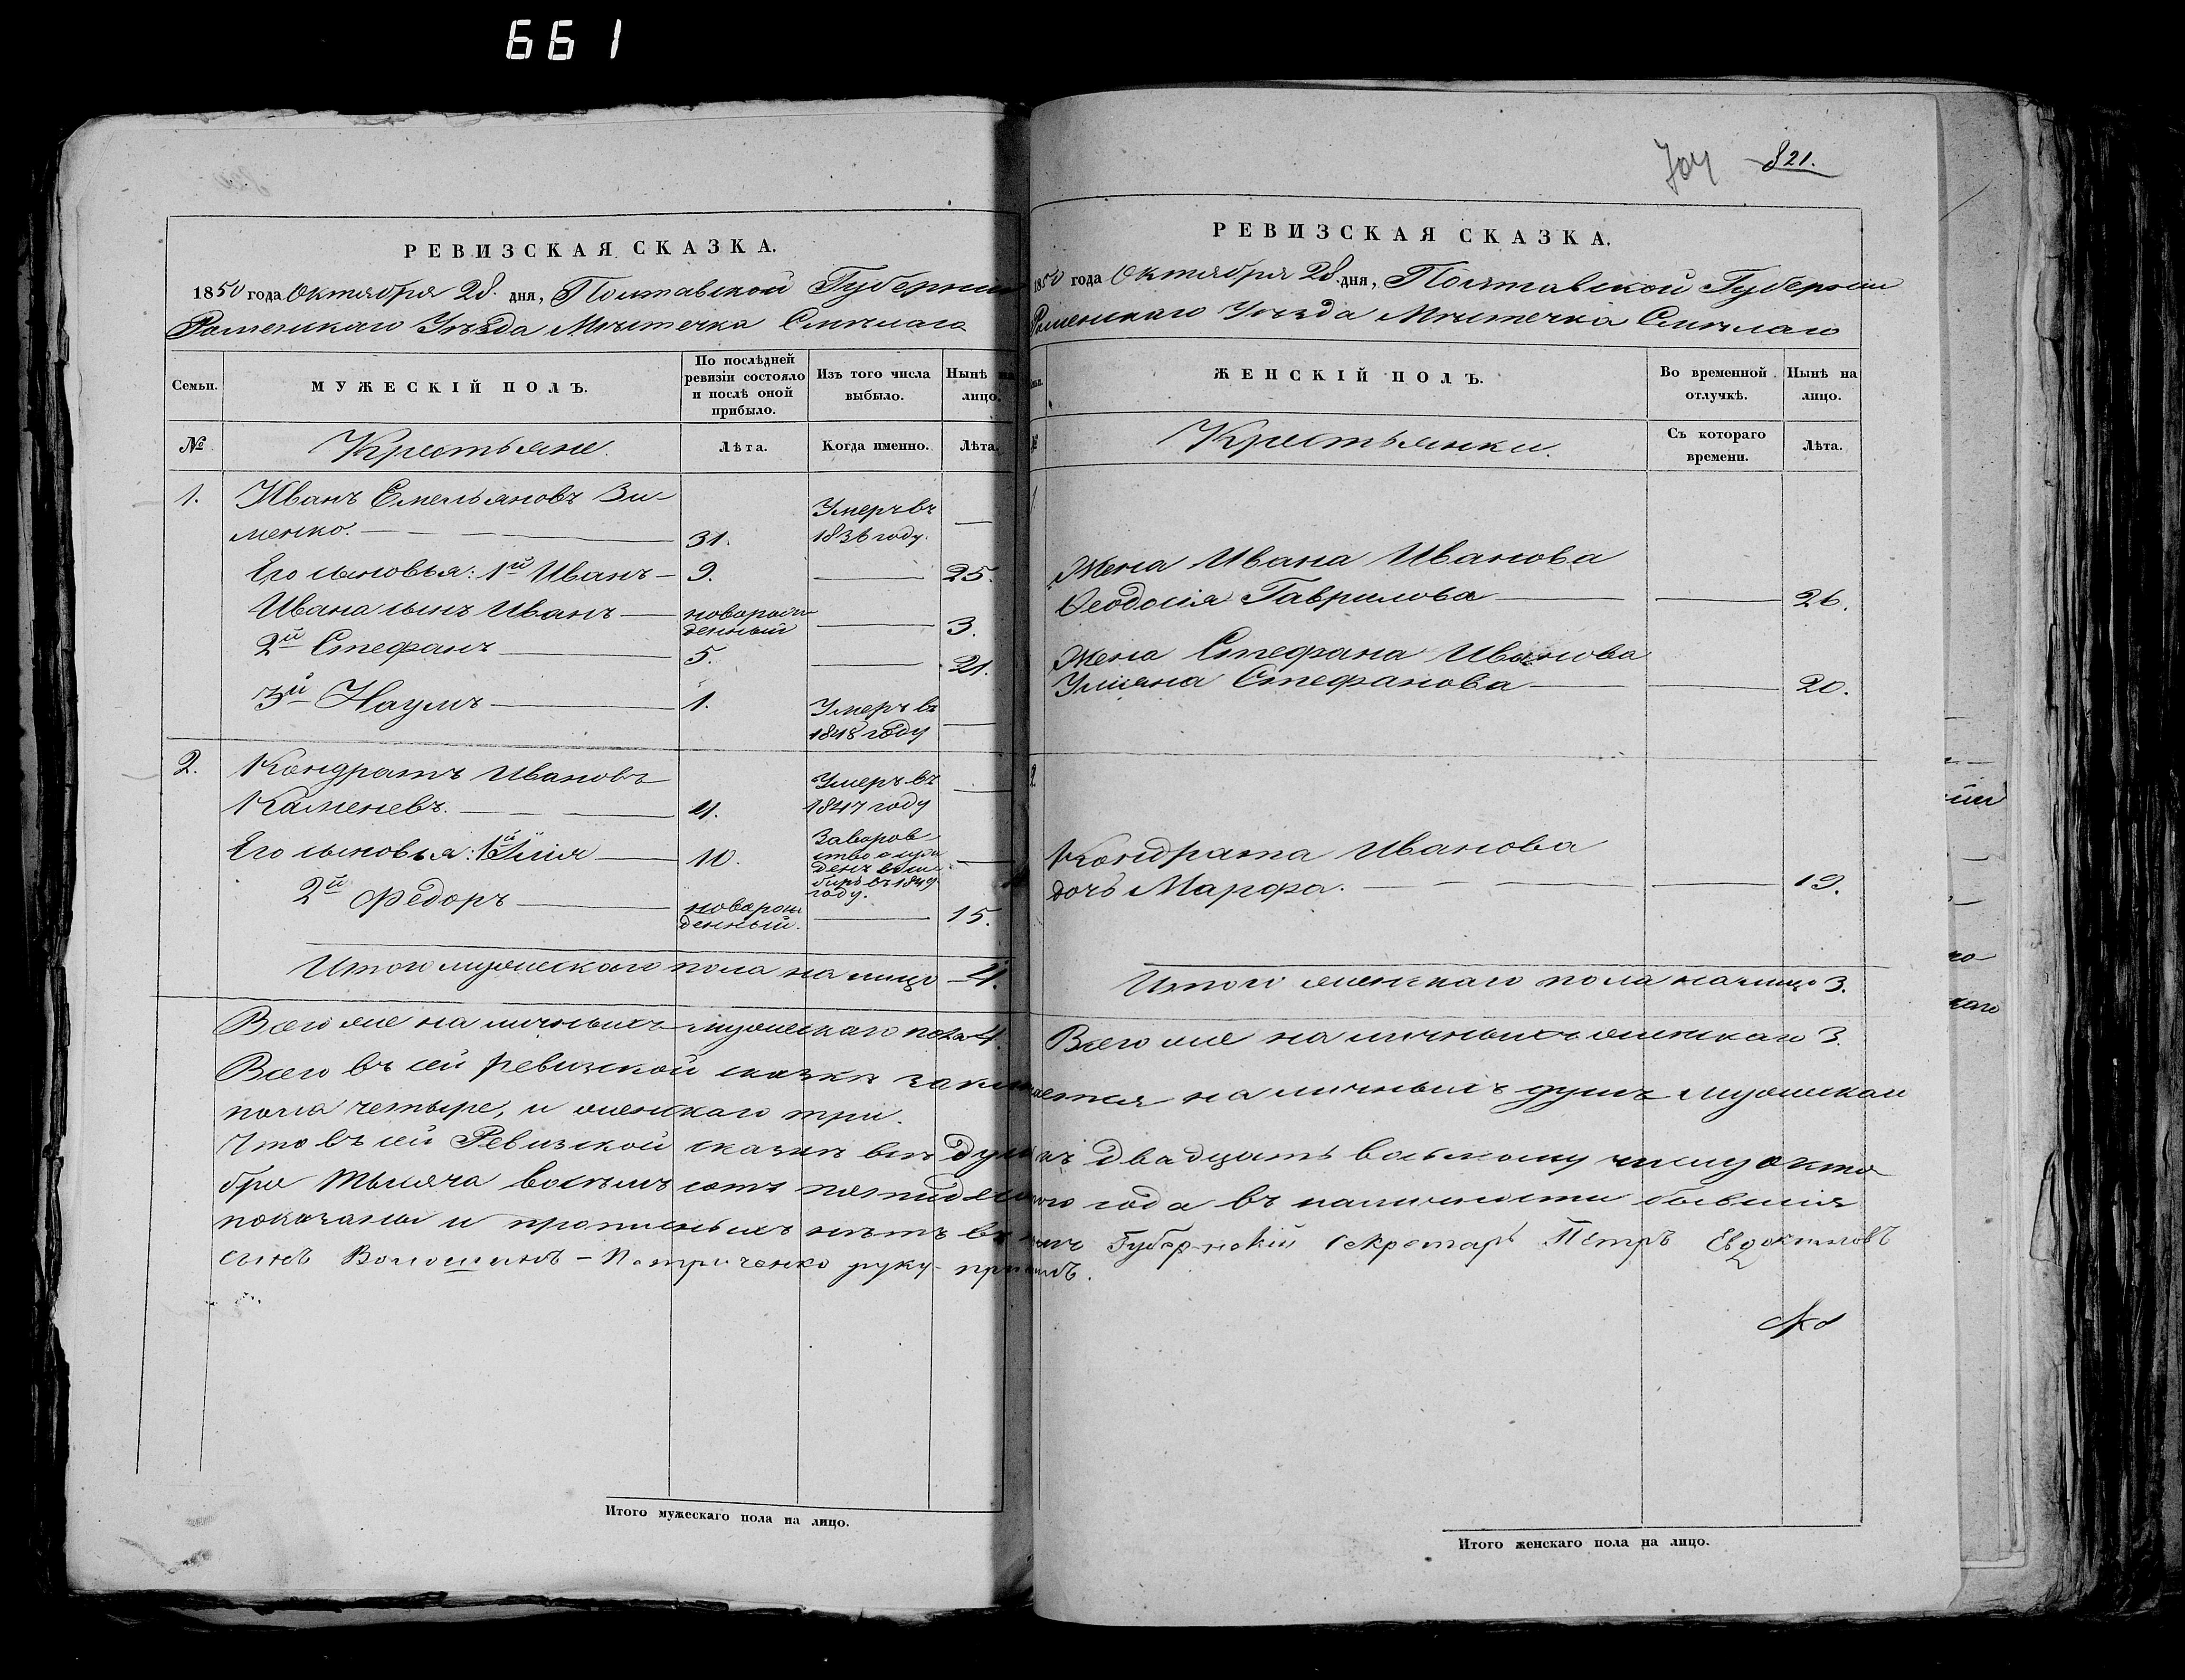 661
РЕВИЗСКАЯ СКАЗКА.
1850 года Октября 28. дня, Полтавской Губерніи
Роменскаго Уѣзда Мѣстечка Смѣлаго
Семьи.
МУЖЕСКІЙ ПОЛЪ.
По послѣдней ревизіи состояло и послѣ оной прибыло.
Изъ того числа выбыло.
Нынѣ на лицо.
№
Крестьяне.
Лѣта.
Когда именно.
Лѣта.
1. Иванъ Емельяновъ Зи
менко. 31. Умеръ въ 1836 году.
Его сыновья: 1й Иванъ 9. 25.
Ивана сынъ Иванъ новорожденный 3.
2й Стефанъ 5. 21.
3й Наумъ 1. Умеръ въ 1848 году
2. Кондратъ Ивановъ
Каменевъ. 41. Умеръ въ 1847 году
Его сыновья: 1й Илія 10. За воровство в 1849 году.
2й Федоръ новорожденный. 15.
Итого мужескаго пола на лицо 4.
Всего же наличныхъ мужескаго пола 4.
821.
РЕВИЗСКАЯ СКАЗКА.
1850 года Октября 28. дня, Полтавской Губерніи
Роменскаго Уѣзда Мѣстечка Смѣлаго
ЖЕНСКІЙ ПОЛЪ.
Во временной отлучкѣ.
Нынѣ на лицо.
№
Крестьянки.
Съ котораго времени.
Лѣта.
1
Жена Ивана Иванова
Феодосія Гаврилова 26.
Жена Стефана Иванова
Уліяна Стефанова 20.
2.
Кондрата Иванова
дочь Марфа. 19.
Итого женскаго пола на лицо 3.
Всего же наличныхъ женскаго 3.
Всего въ сей ревизской сказкѣ заключается наличныхъ душъ мужескаго
пола четыре, и женскаго три.
Что въ сей Ревизской сказкѣ всѣ души къ двадцать восьмому числу октя
бря тысяча восемь сотъ пятидесятого года въ наличности бывшія
показаны и прописныхъ нѣтъ въ томъ Губернскій Секретарь Петръ Евдокимовъ
сынъ Волошинъ-Петриченко руку приложилъ.
Итого мужескаго пола на лицо.
Итого женскаго пола на лицо.